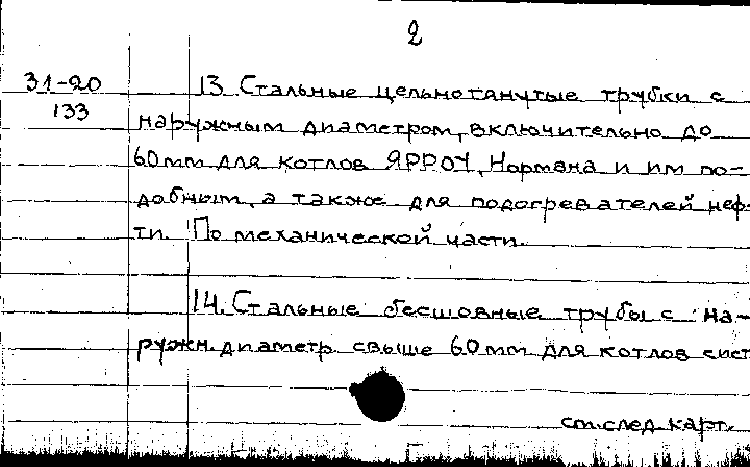 2
31-20
133
13 Стальные цельнотянутые трубки с
наружным диаметром, включительно до
60 mm для котлов ЯРРОУ, Нормана и им по-
добным, а также для подогревателей неф-
ти. По механической части.
14. Стальные бесшовные трубы с на-
ружн. диаметр. свыше 60 mm для котлов сист
см. след. карт.